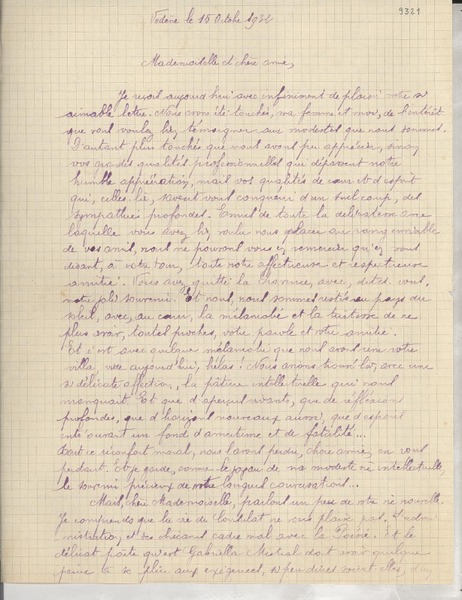 9321
le 15 Octobre 1932
Mademoiselle et chère amie,
Je reçois aujourd'hui avec infiniment de plaisir votre si
aimable lettre. Nous avons été touchés, ma femme et moi, de l'intérêt
que vous voulez bien témoigner aux modestes que nous sommes.
D'autant plus touchés que nous avons pu apprécier, sinon
vos grandes qualités professionnelles qui dépassent notre
humble appréciation, mais vos qualités de cœur et d'esprit
qui, celles-là, savent vous conquérir d'un seul coup, des
sympathies profondes. Émus de toute la délicatesse avec
laquelle vous avez bien voulu nous placer au rang enviable
de vos amis, nous ne pouvons vous remercier qu'en vous
disant, à notre tour, toute notre affectueuse et respectueuse
amitié. Vous avez quitté la Provence, avec, dites-vous,
notre joli souvenir. Et nous, nous sommes restés au pays du
soleil, avec, au cœur, la mélancolie et la tristesse de ne
plus avoir, toutes proches, votre parole et votre amitié.
Et c'est avec quelque mélancolie que nous avons revu votre
villa, vide aujourd'hui, hélas! Nous avons là, avec une
si délicate affection, la pâture intellectuelle qui nous
manquait. Et que d'aperçus vivants, que de réflexions
profondes, que d'horizons nouveaux aussi, que d'espoir
un fond d'amertume et de fatalité...
Tout ce réconfort moral, nous l'avons perdu, chère amie, en vous
perdant. Et je garde, comme le joyau de ma modeste vie intellectuelle
le souvenir précieux de notre longues conversations...
Mais, chère Mademoiselle, parlons un peu de votre vie nouvelle.
Je comprends que la vie de consulat ne vous plaise pas. L'admi-
nistration et ses chicanes cadre mal avec la Poésie. Et le
délicat poète qu'est Gabriella Mistral doit avoir quelque
peine à se plier aux exigences, si peu